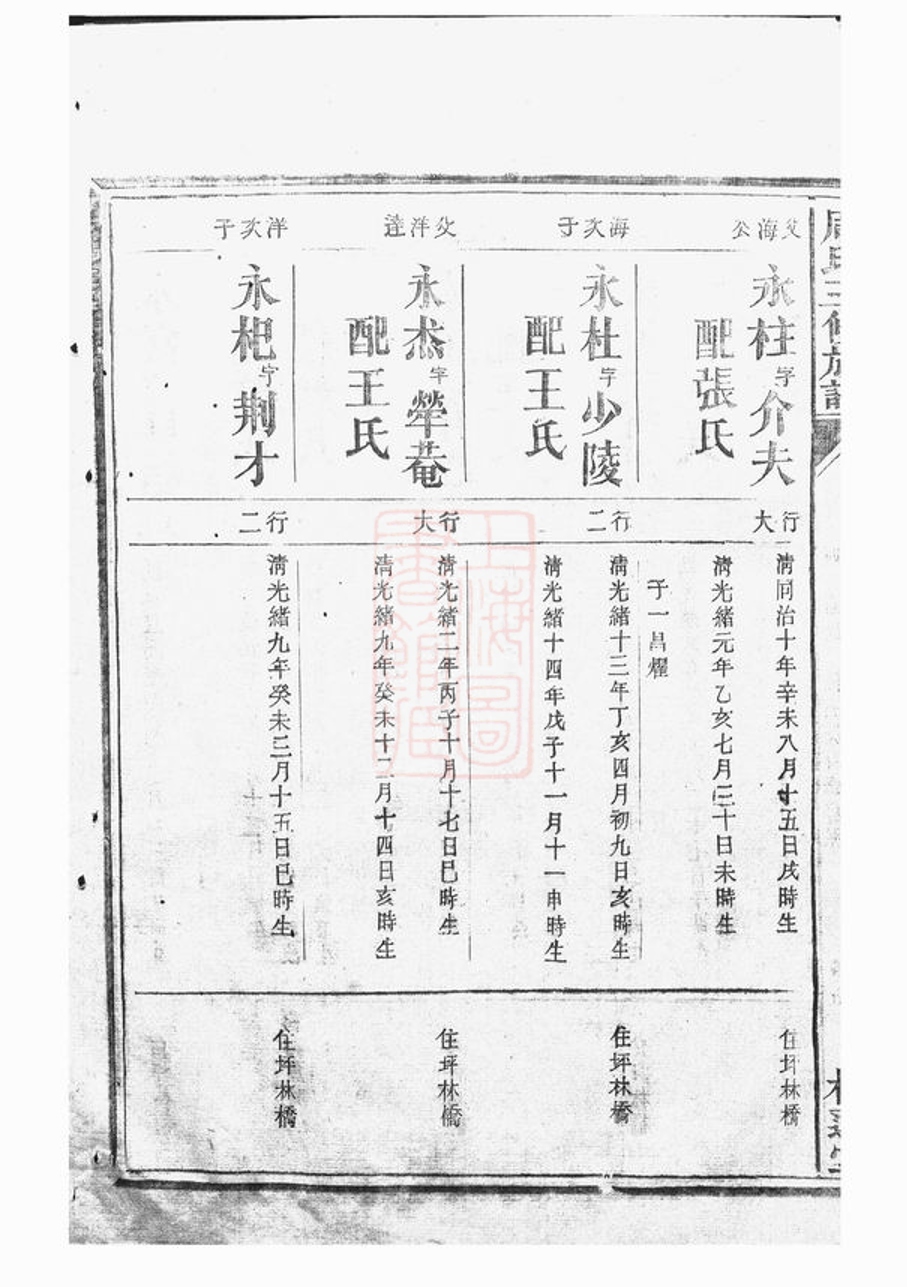 周氏三修族譜
父海公
永柱字介夫
配張氏
行大
清同治十年辛未八月十五日戌時生
清光緒元年乙亥七月三十日未時生
子一昌耀
住坪林橋
海次子
永杜字少陵
配王氏
行二
清光緒十三年丁亥四月初九日亥時生
清光緒十四年戊子十一月十一申時生
住坪林橋
父洋達
永杰字犖菴
配王氏
行大
清光緒二年丙子十月十七日巳時生
清光緒九年癸未十二月十四日亥時生
住坪林橋
洋次子
永杞字荆才
行二
清光緒九年癸未三月十五日巳時生
住坪林橋
上海圖
書館藏